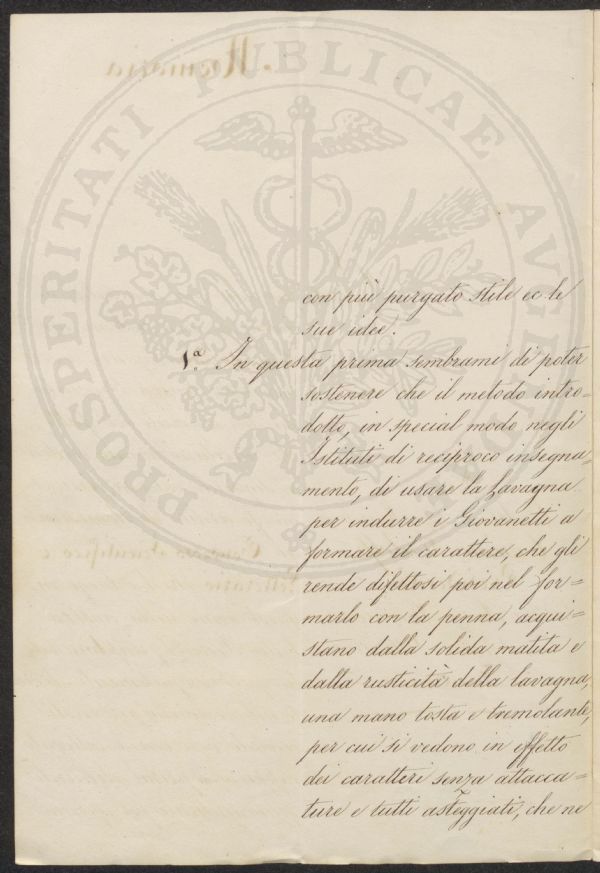 PROSPERITATI PUBLICAE AVGENDAE
con più purgato stile ec le
sue idee.
1.ª In questa prima sembrami di poter
sostenere che il metodo intro-
dotto, in special modo negli
Istituti di reciproco insegna=
mento, di usare la Lavagna
per indurre i Giovanetti a
formare il carattere, che gli
rende difettosi poi nel for=
marlo con la penna, acqui=
stano dalla solida matita e
dalla rusticità della lavagna,
una mano tosta e tremolante,
per cui si vedono in effetto
dei caratteri senza attacca=
ture e tutti asteggiati, che ne